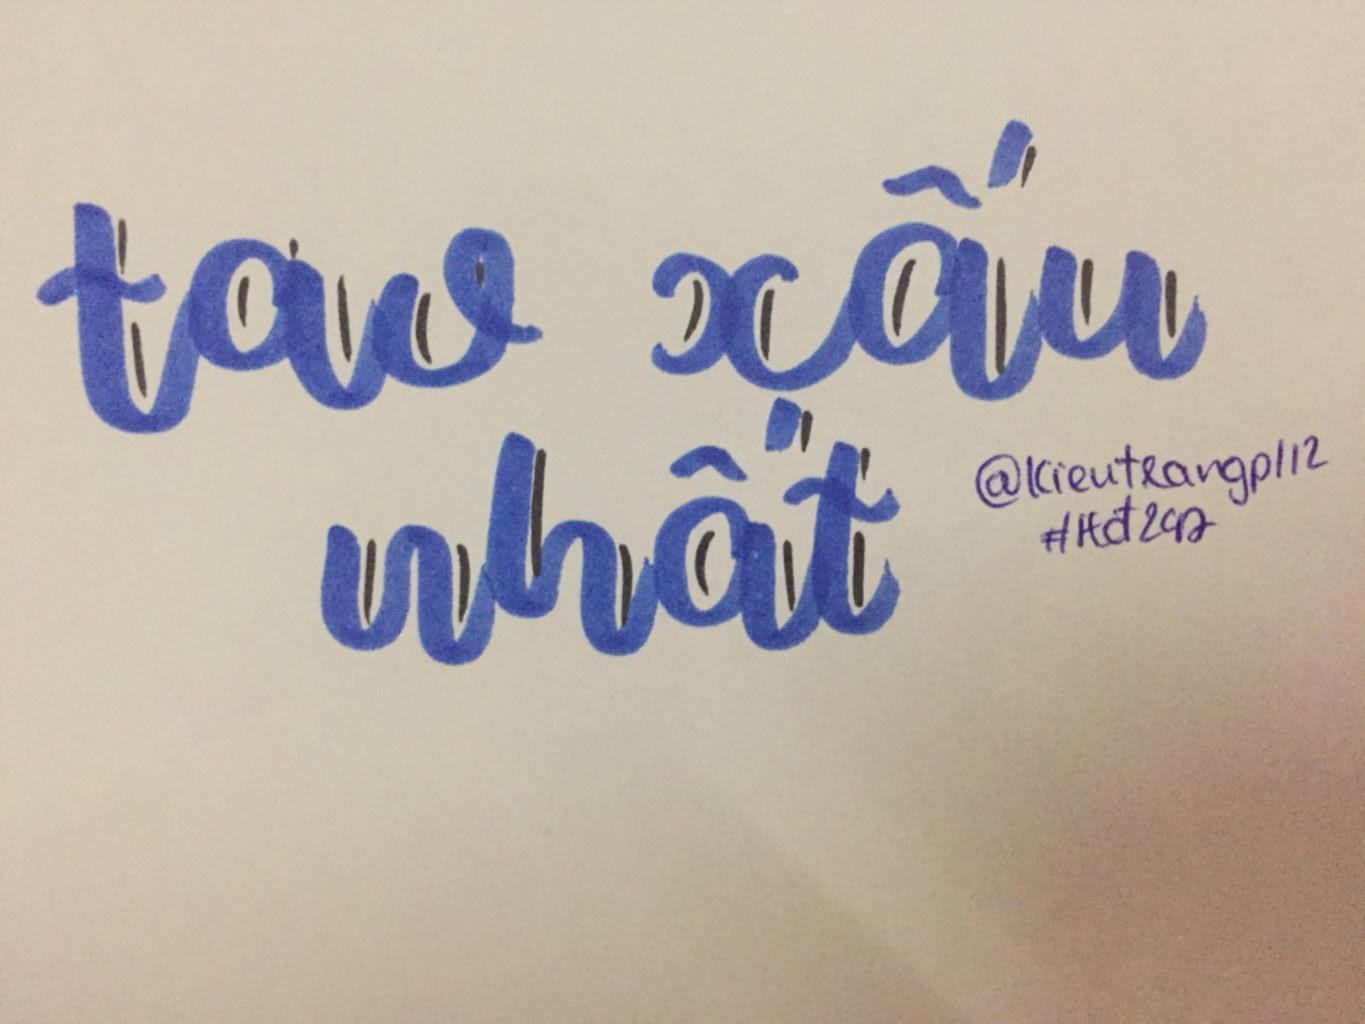 tao xấu
nhất
@kieutrangp112